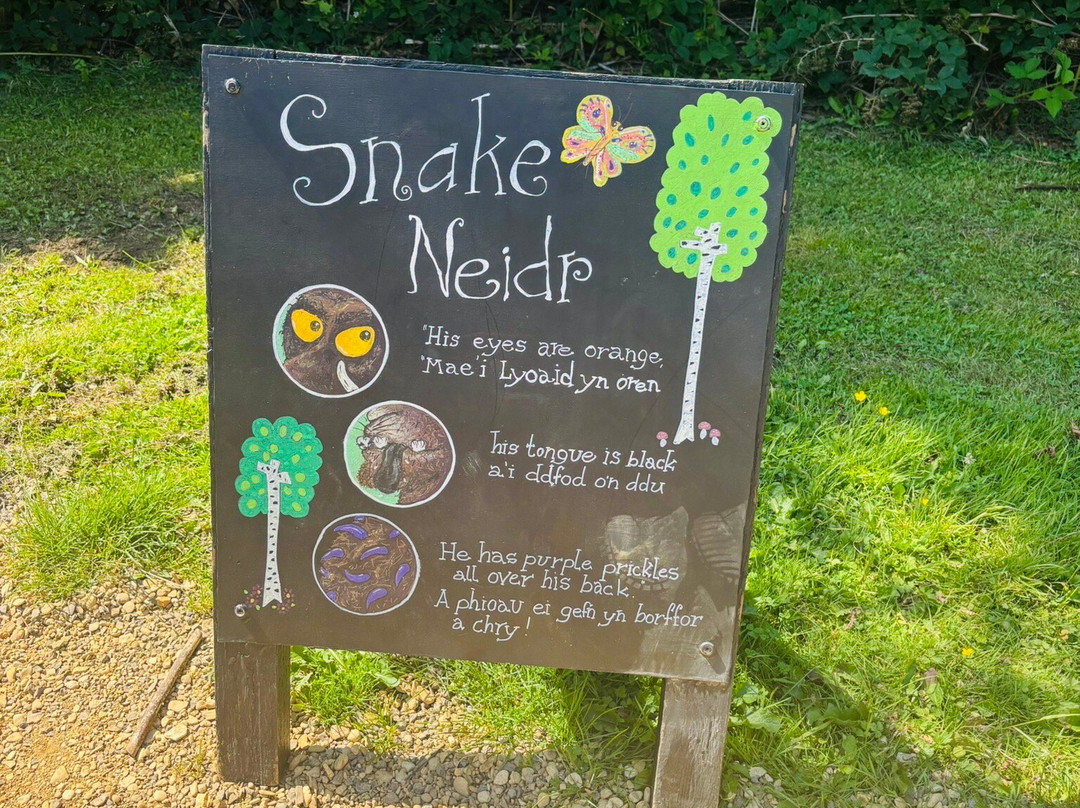 Snake
Neidr
"His eyes are orange,
"Mae'i Lyoaid yn oren
his tongue is black
a'i ddfod o'n ddu
He has purple prickles
all over his back.
A phioau ei gefn yn borffor
a chry!